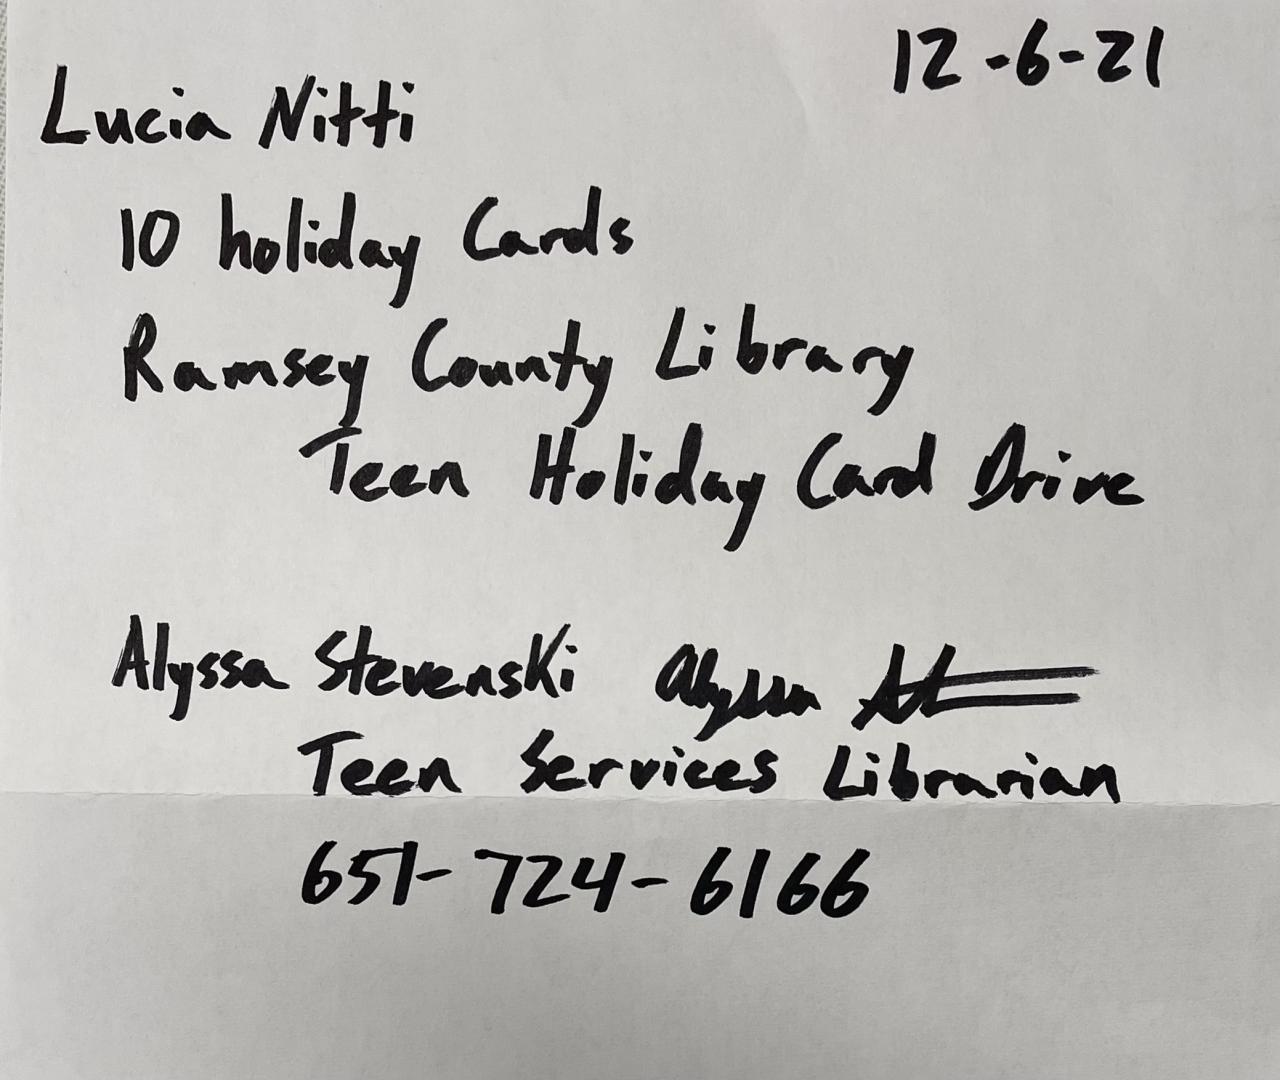 12-6-21
Lucia Nitti
10 holiday Cards
Ramsey County Library
Teen Holiday Card Drive
Alyssa Stevenski Alyssa
Teen Services Librarian
651-724-6166